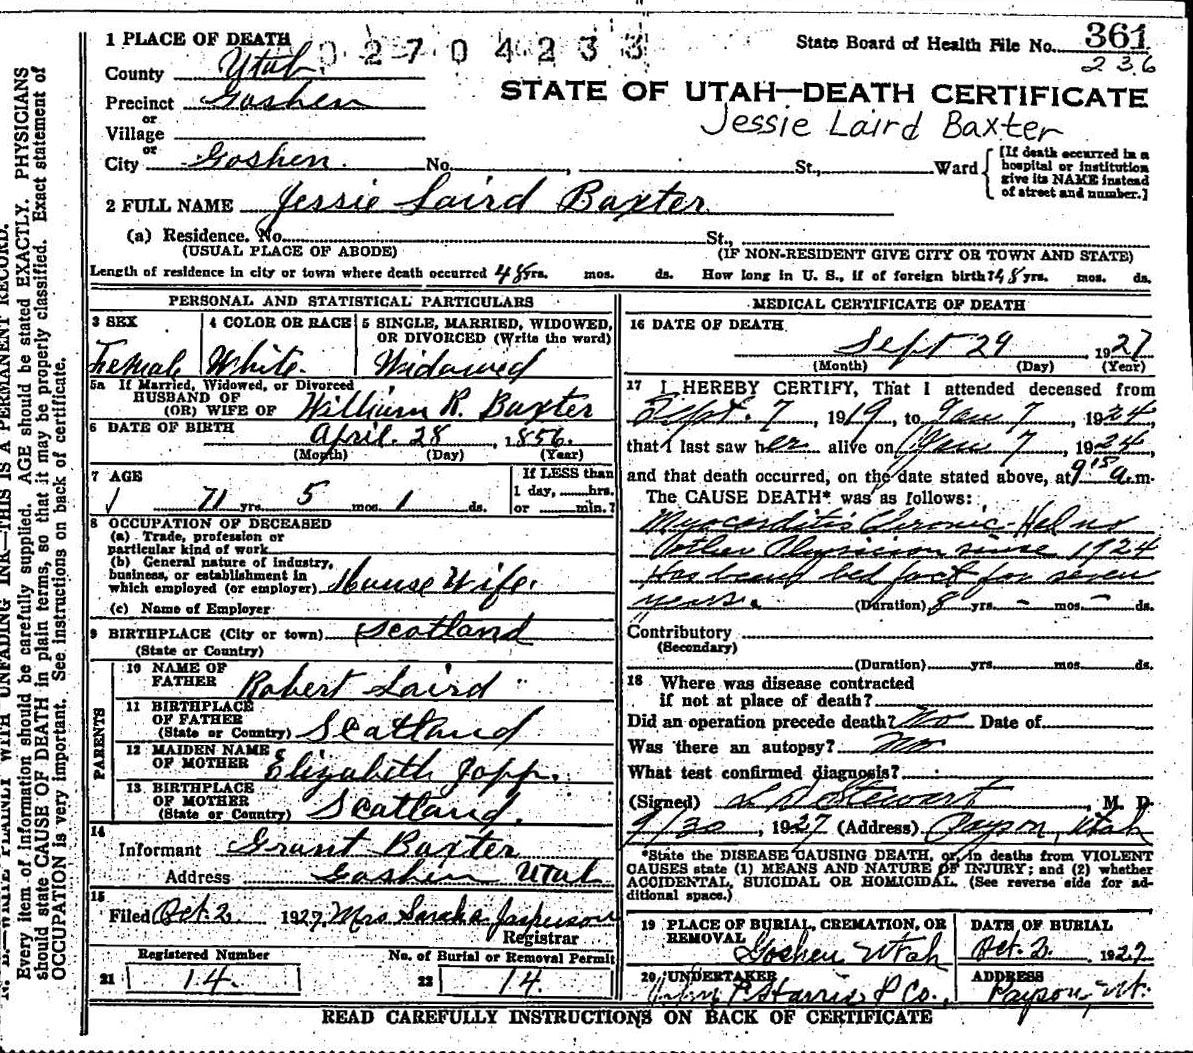 1 PLACE OF DEATH
0 2 7 0 4 2 3 3
State Board of Health File No. 361
236
County Utah
STATE OF UTAH—DEATH CERTIFICATE
Precinct Goshen
Jessie Laird Baxter
or
Village
or
City Goshen. No. , St., Ward
[If death occurred in a
hospital or institution
give its NAME instead
of street and number.]
2 FULL NAME Jessie Laird Baxter
(a) Residence. No. St.,
(USUAL PLACE OF ABODE) (IF NON-RESIDENT GIVE CITY OR TOWN AND STATE)
Length of residence in city or town where death occurred 48 yrs. mos. ds. How long in U. S., if of foreign birth? 48 yrs. mos. ds.
PERSONAL AND STATISTICAL PARTICULARS
3 SEX
Female
4 COLOR OR RACE
White
5 SINGLE, MARRIED, WIDOWED,
OR DIVORCED (Write the word)
Widowed
5a If Married, Widowed, or Divorced
HUSBAND OF
(OR) WIFE OF William R. Baxter
6 DATE OF BIRTH April. 28, 1856.
(Month) (Day) (Year)
7 AGE
71 yrs. 5 mos. 1 ds.
If LESS than
1 day, hrs.
or min.?
8 OCCUPATION OF DECEASED
(a) Trade, profession or
particular kind of work
(b) General nature of industry,
business, or establishment in
which employed (or employer) House Wife.
(c) Name of Employer
9 BIRTHPLACE (City or town) Scotland
(State or Country)
PARENTS
10 NAME OF
FATHER Robert Laird
11 BIRTHPLACE
OF FATHER
(State or Country) Scotland
12 MAIDEN NAME
OF MOTHER Elizabeth Japp.
13 BIRTHPLACE
OF MOTHER
(State or Country) Scotland.
14
Informant Grant Baxter
Address Goshen Utah
15
Filed Oct. 2 1927. Mrs Sarah Jasperson
Registrar
Registered Number No. of Burial or Removal Permit
21 14. 22 14.
MEDICAL CERTIFICATE OF DEATH
16 DATE OF DEATH
Sept 29, 1927
(Month) (Day) (Year)
17 I HEREBY CERTIFY, That I attended deceased from
Sept. 7, 1919, to Jan 7, 1924,
that I last saw her alive on Jan 7, 1924,
and that death occurred, on the date stated above, at 9 15 a.m.
The CAUSE DEATH* was as follows:
Myocarditis Chronic - Had no
other Physician since 1924
Has been bed fast for seven
years. (Duration) 8 yrs. - mos. - ds.
Contributory
(Secondary)
(Duration) yrs. mos. ds.
18 Where was disease contracted
if not at place of death?
Did an operation precede death? No Date of
Was there an autopsy? No
What test confirmed diagnosis?
(Signed) L D Stewart, M. D.
9/30, 1927 (Address) Payson, Utah
*State the DISEASE CAUSING DEATH, or, in deaths from VIOLENT
CAUSES state (1) MEANS AND NATURE OF INJURY; and (2) whether
ACCIDENTAL, SUICIDAL OR HOMICIDAL. (See reverse side for ad-
ditional space.)
19 PLACE OF BURIAL, CREMATION, OR
REMOVAL Goshen Utah
DATE OF BURIAL
Oct. 2. 1927
20 UNDERTAKER
P Harris & Co.,
ADDRESS
Payson, Ut.
READ CAREFULLY INSTRUCTIONS ON BACK OF CERTIFICATE
N. B.—WRITE PLAINLY WITH UNFADING INK—THIS IS A PERMANENT RECORD.
Every item of information should be carefully supplied. AGE should be stated EXACTLY. PHYSICIANS
should state CAUSE OF DEATH in plain terms, so that it may be properly classified. Exact statement of
OCCUPATION is very important. See instructions on back of certificate.